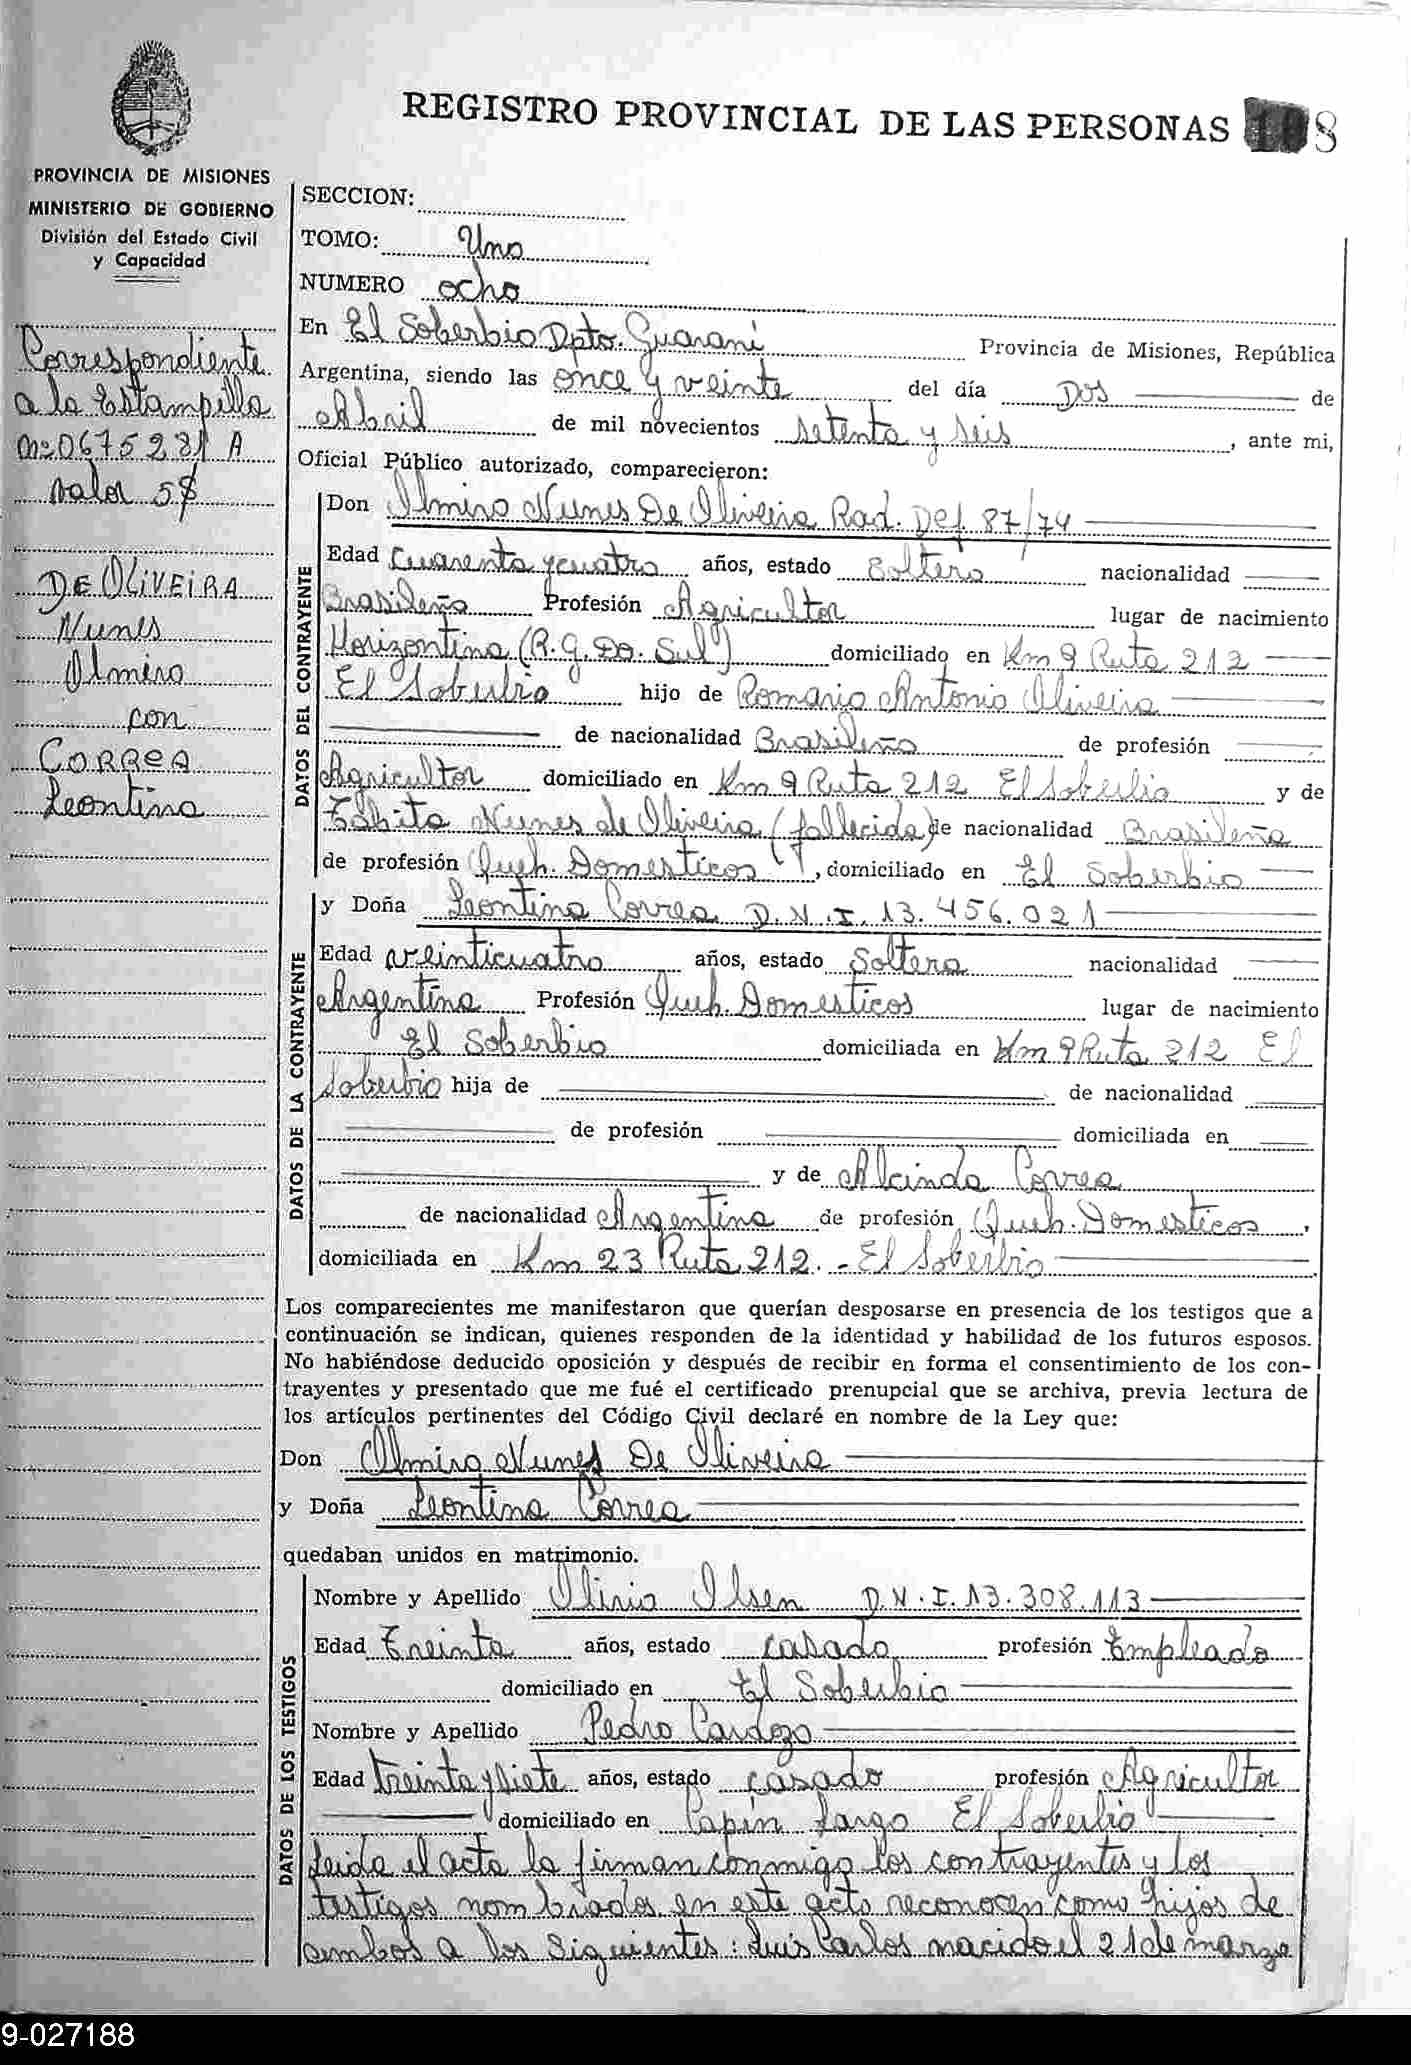 REGISTRO PROVINCIAL DE LAS PERSONAS 8
PROVINCIA DE MISIONES
MINISTERIO DE GOBIERNO
División del Estado Civil
y Capacidad
Correspondiente
a la Estampilla
Nº 0675281 A
valor 5$
DE OLIVEIRA
Nunes
Olmiro
con
CORREA
Leontina
SECCION:
TOMO: Uno
NUMERO ocho
En El Soberbio Dpto. Guaraní Provincia de Misiones, República
Argentina, siendo las once y veinte del día Dos de
Abril de mil novecientos setenta y seis, ante mi,
Oficial Público autorizado, comparecieron:
DATOS DEL CONTRAYENTE
Don Olmiro Nunes De Oliveira Rad. Def. 87/74
Edad Cuarenta y cuatro años, estado Soltero nacionalidad
Brasileña Profesión Agricultor lugar de nacimiento
Horizontina (R.G. Do. Sul) domiciliado en Km 9 Ruta 212
El Soberbio hijo de Romario Antonio Oliveira
de nacionalidad Brasileño de profesión
Agricultor domiciliado en Km 9 Ruta 212 El Soberbio y de
Tabita Nunes de Oliveira (fallecida) de nacionalidad Brasileña
de profesión Queh. Domesticos, domiciliado en El Soberbio
DATOS DE LA CONTRAYENTE
y Doña Leontina Correa D.N.I. 13.456.021
Edad veinticuatro años, estado Soltera nacionalidad
Argentina Profesión Queh. Domesticos lugar de nacimiento
El Soberbio domiciliada en Km 9 Ruta 212 El
Soberbio hija de de nacionalidad
de profesión domiciliada en
y de Alcinda Correa
de nacionalidad Argentina de profesión Queh. Domesticos,
domiciliada en Km 23 Ruta 212.- El Soberbio
Los comparecientes me manifestaron que querían desposarse en presencia de los testigos que a
continuación se indican, quienes responden de la identidad y habilidad de los futuros esposos.
No habiéndose deducido oposición y después de recibir en forma el consentimiento de los con-
trayentes y presentado que me fué el certificado prenupcial que se archiva, previa lectura de
los artículos pertinentes del Código Civil declaré en nombre de la Ley que:
Don Olmiro Nunes De Oliveira
y Doña Leontina Correa
quedaban unidos en matrimonio.
DATOS DE LOS TESTIGOS
Nombre y Apellido Olirio Olsen D.N.I. 13.308.113
Edad Treinta años, estado casado profesión Empleado
domiciliado en El Soberbio
Nombre y Apellido Pedro Cardozo
Edad treinta y siete años, estado casado profesión Agricultor
domiciliado en Capin Largo El Soberbio
Leida el acta la firman conmigo los contrayentes y los
testigos nombrados en este acto reconocen como hijos de
ambos a los siguientes: Luis Carlos nacido el 21 de marzo
9-027188